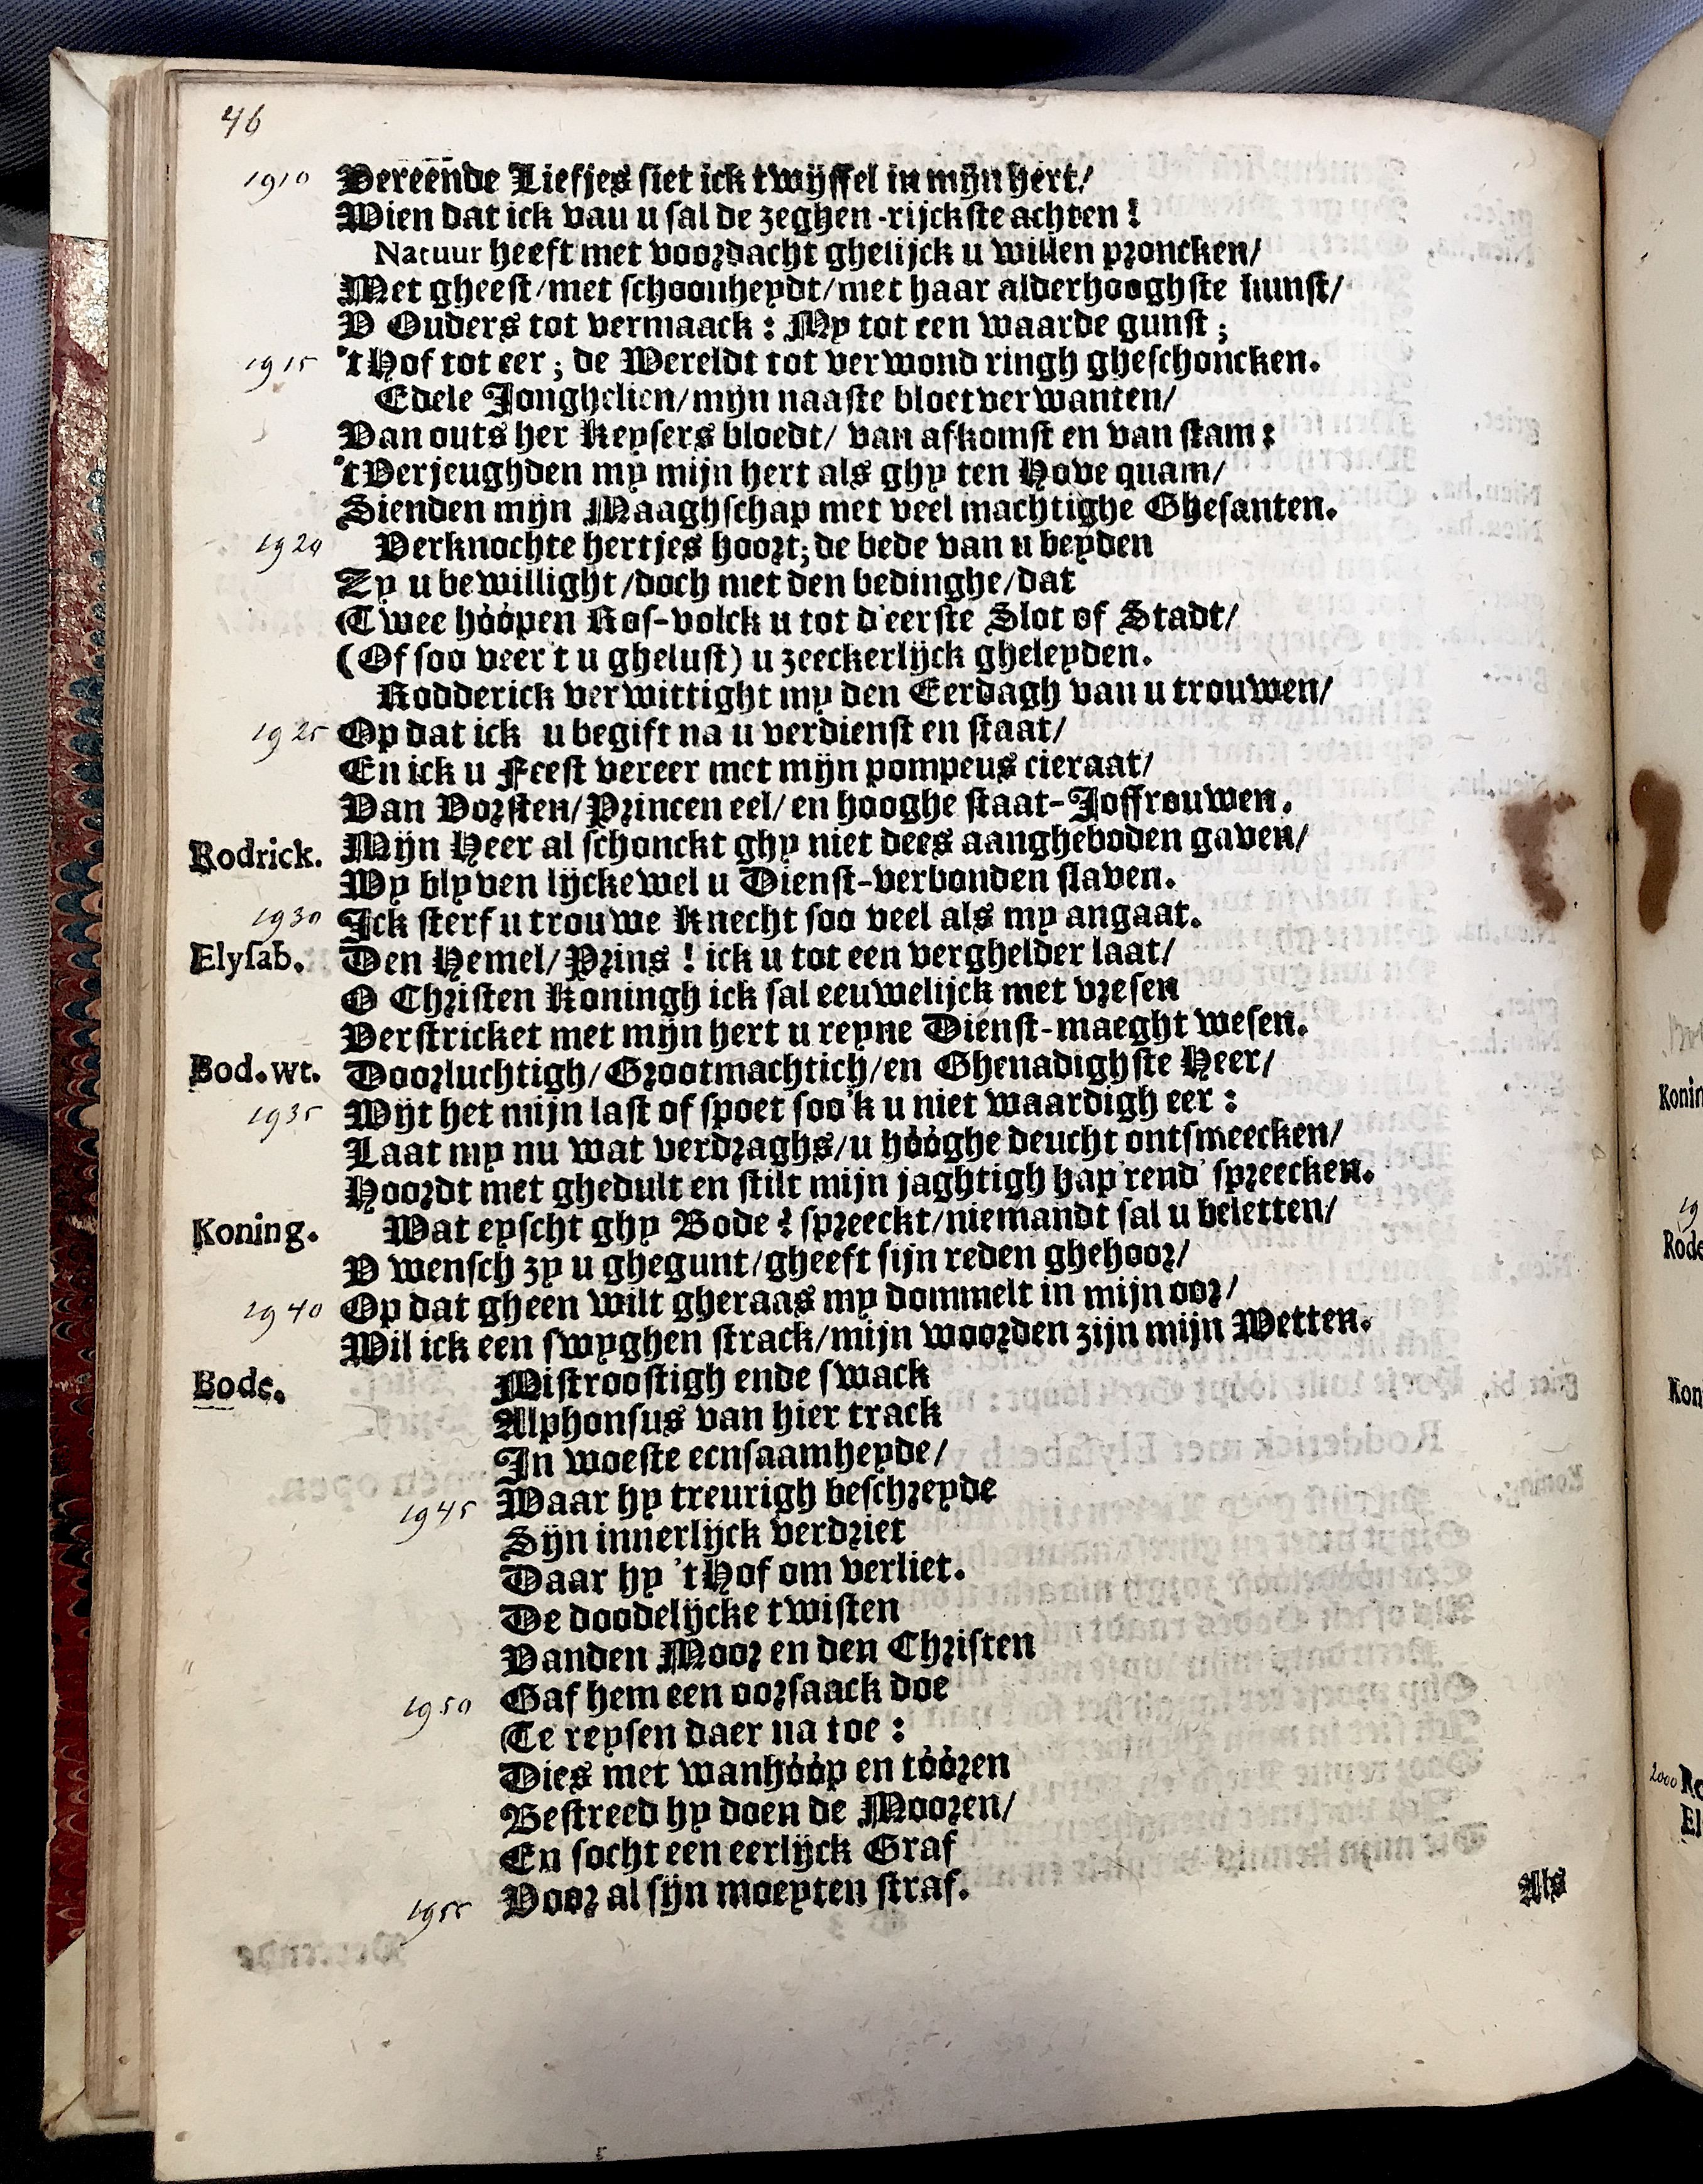 46
1910 Vereende Liefjes siet ick twijffel in mijn hert/
Wien dat ick vau u sal de zeghen-rijckste achten!
Natuur heeft met voordacht ghelijck u willen proncken/
Met gheest/met schoonheydt/met haar alderhooghste kunst/
V Ouders tot vermaack: My tot een waarde gunst;
1915 't Hof tot eer; de Wereldt tot verwondringh gheschoncken.
Edele Jonghelien/mijn naaste bloetverwanten/
Van outs her Keysers bloedt/ van afkomst en van stam:
't Verjeughden my mijn hert als ghy ten Hove quam/
Sienden mijn Maaghschap met veel machtighe Ghesanten.
1920 Verknochte hertjes hoort; de bede van u beyden
Zy u bewillight/doch met den bedinghe/dat
Twee hóópen Ros-volck u tot d'eerste Slot of Stadt/
(Of soo veer t u ghelust) u zeeckerlijck gheleyden.
Rodderick verwittight my den Eerdagh van u trouwen/
1925 Op dat ick u begift na u verdienst en staat/
En ick u Feest vereer met mijn pompeus cieraat/
Van Vorsten/Princen eel/en hooghe staat-Joffrouwen.
Rodrick. Mijn Heer al schonckt ghy niet dees aangheboden gaven/
Wy blyven lijckewel u Dienst-verbonden slaven.
1930 Ick sterf u trouwe Knecht soo veel als my angaat.
Elysab. Den Hemel/Prins! ick u tot een verghelder laat/
O Christen Koningh ick sal eeuwelijck met vresen
Verstricket met mijn hert u reyne Dienst-maeght wesen.
Bod. wt. Doorluchtigh/Grootmachtich/en Ghenadighste Heer/
1935 Wijt het mijn last of spoet soo'k u niet waardigh eer:
Laat my nu wat verdraghs/u hóóghe deucht ontsmeecken/
Hoordt met ghedult en stilt mijn jaghtigh hap'rend' spreecken.
Koning. Wat eyscht ghy Bode? spreeckt/niemandt sal u beletten/
V wensch zy u ghegunt/gheeft sijn reden ghehoor/
1940 Op dat gheen wilt gheraas my dommelt in mijn oor/
Wil ick een swyghen strack/mijn woorden zijn mijn Wetten.
Bode. Mistroostigh ende swack
Alphonsus van hier track
In woeste eensaamheyde/
1945 Waar hy treurigh beschreyde
Sijn innerlijck verdriet
Daar hy 't Hof om verliet.
De doodelijcke twisten
Vanden Moor en den Christen
1950 Gaf hem een oorsaack doe
Te reysen daer na toe:
Dies met wanhóóp en tóóren
Bestreed hy doen de Mooren/
En socht een eerlijck Graf
1955 Voor al sijn moeyten straf.
Als